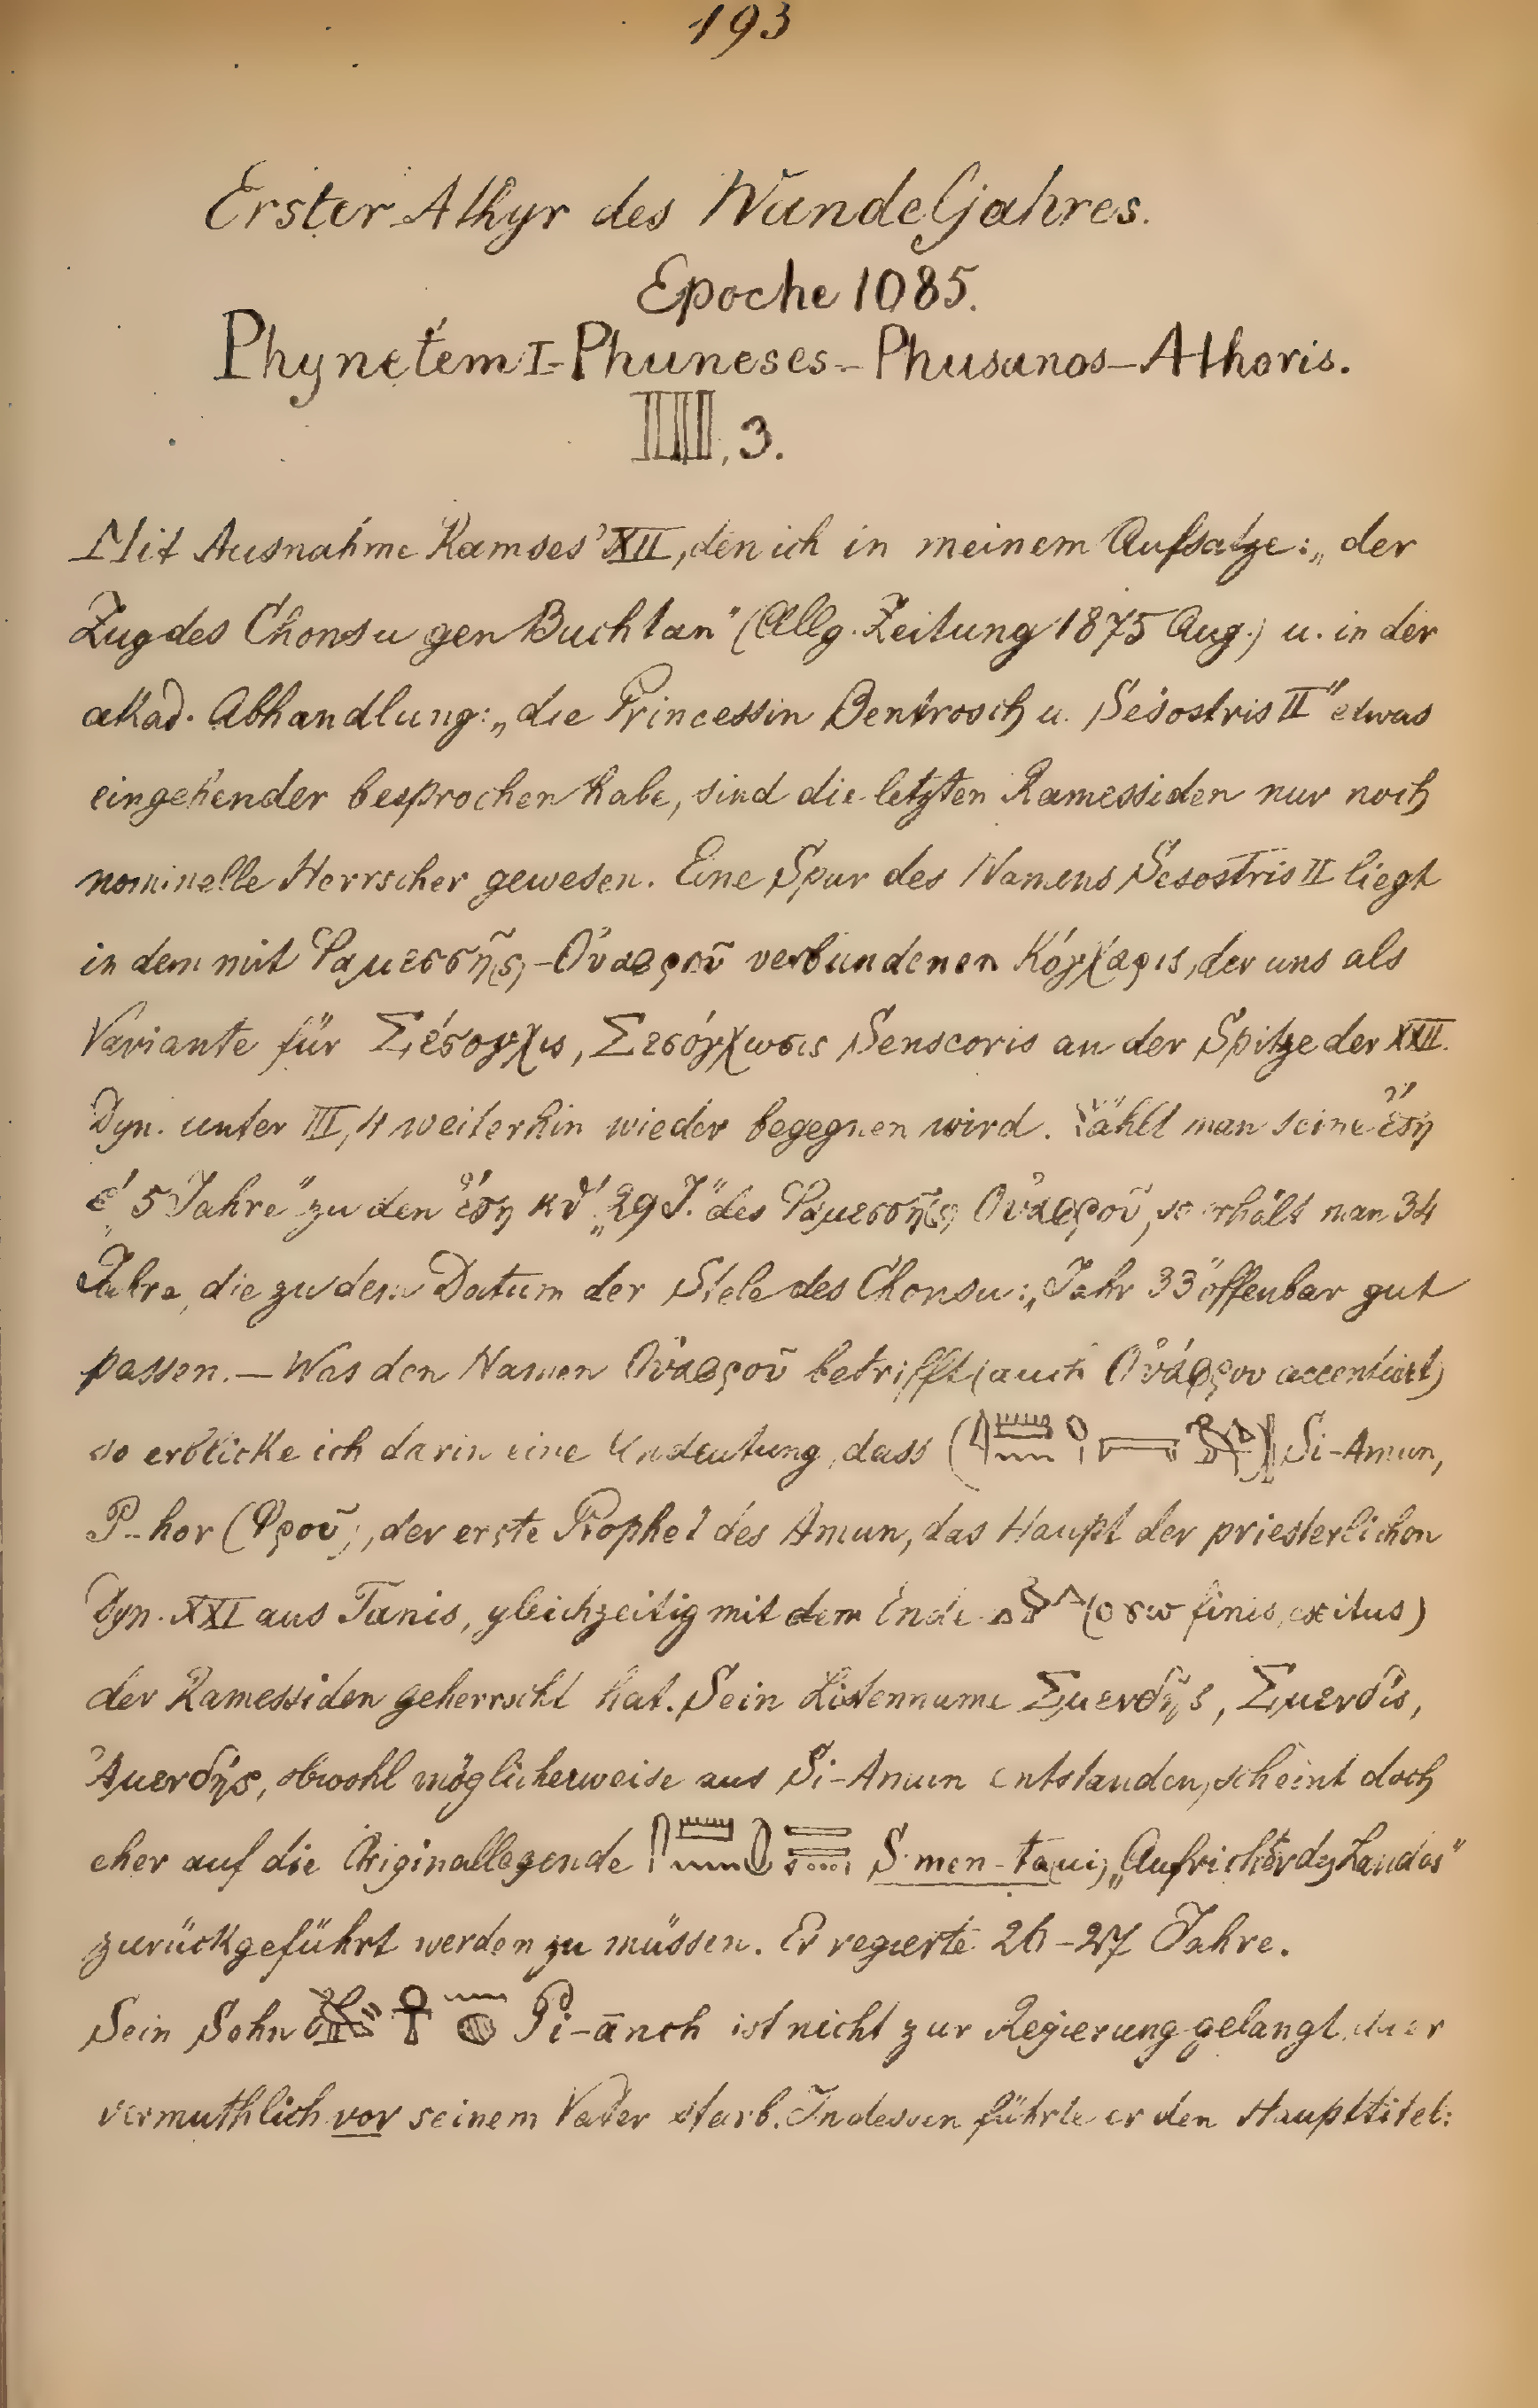 193
Erster Athyr des Wandeljahres.
Epoche 1085.
Phynetem I-Phuneses-Phusanos-Athoris.
IIII, 3.
Mit Ausnahme Ramses' XII, den ich in meinem Aufsatze: „der
Zug des Chonsu gen Buchtan" (Allg. Zeitung 1875 Aug.) u. in der
akad. Abhandlung: „die Princessin Bentrosch u. Sesostris II" etwas
eingehender besprochen habe, sind die letzten Ramessiden nur noch
nominelle Herrscher gewesen. Eine Spur des Namens Sesostris II liegt
in dem mit Ῥαμεσσῆς-Οὐαφροῦ verbundenen Κόγχαρις, der uns als
Variante für Σέσογχις, Σεσόγχωσις Senscoris an der Spitze der XXII.
Dyn. unter III, 4 weiterhin wieder begegnen wird. Zählt man seine ἔτη
ε' „5 Jahre" zu den ἔτη κθ' „29 J." des Ῥαμεσσῆς Οὐαφροῦ, so erhält man 34
Jahre, die zu dem Datum der Stele des Chonsu: „Jahr 33" offenbar gut
passen. — Was den Namen Οὐαφροῦ betrifft (auch Οὐάφρου accentuirt)
so erblicke ich darin eine Andeutung, dass Si-Amun,
P-hor (Φροῦ), der erste Prophet des Amun, das Haupt der priesterlichen
Dyn. XXI aus Tanis, gleichzeitig mit dem Ende (finis, exitus)
der Ramessiden geherrscht hat. Sein Listenname Σμενδῆς, Σμενδίς,
obwohl möglicherweise aus Si-Amun entstanden, scheint doch
eher auf die Originallegende S-men-ta(ui) „Aufrichter des Landes"
zurückgeführt werden zu müssen. Er regierte 26-27 Jahre.
Sein Sohn Pi-ānch ist nicht zur Regierung gelangt, da er
vermuthlich vor seinem Vater starb. Indessen führte er den Haupttitel: